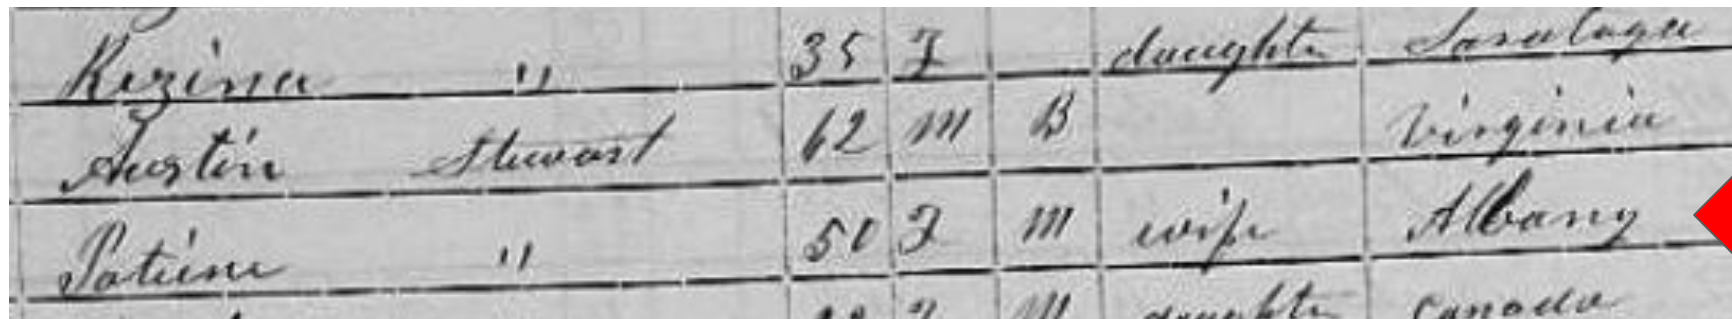 Kezina " 35 F daughte Saratoga
Austin Stewart 62 M B Virginia
Patiene " 50 F M wife Albany
F M daughte Canada